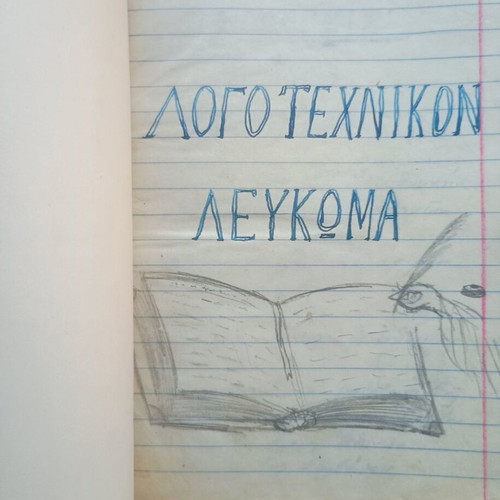 ΛΟΓΟΤΕΧΝΙΚΟΝ
ΛΕΥΚΩΜΑ